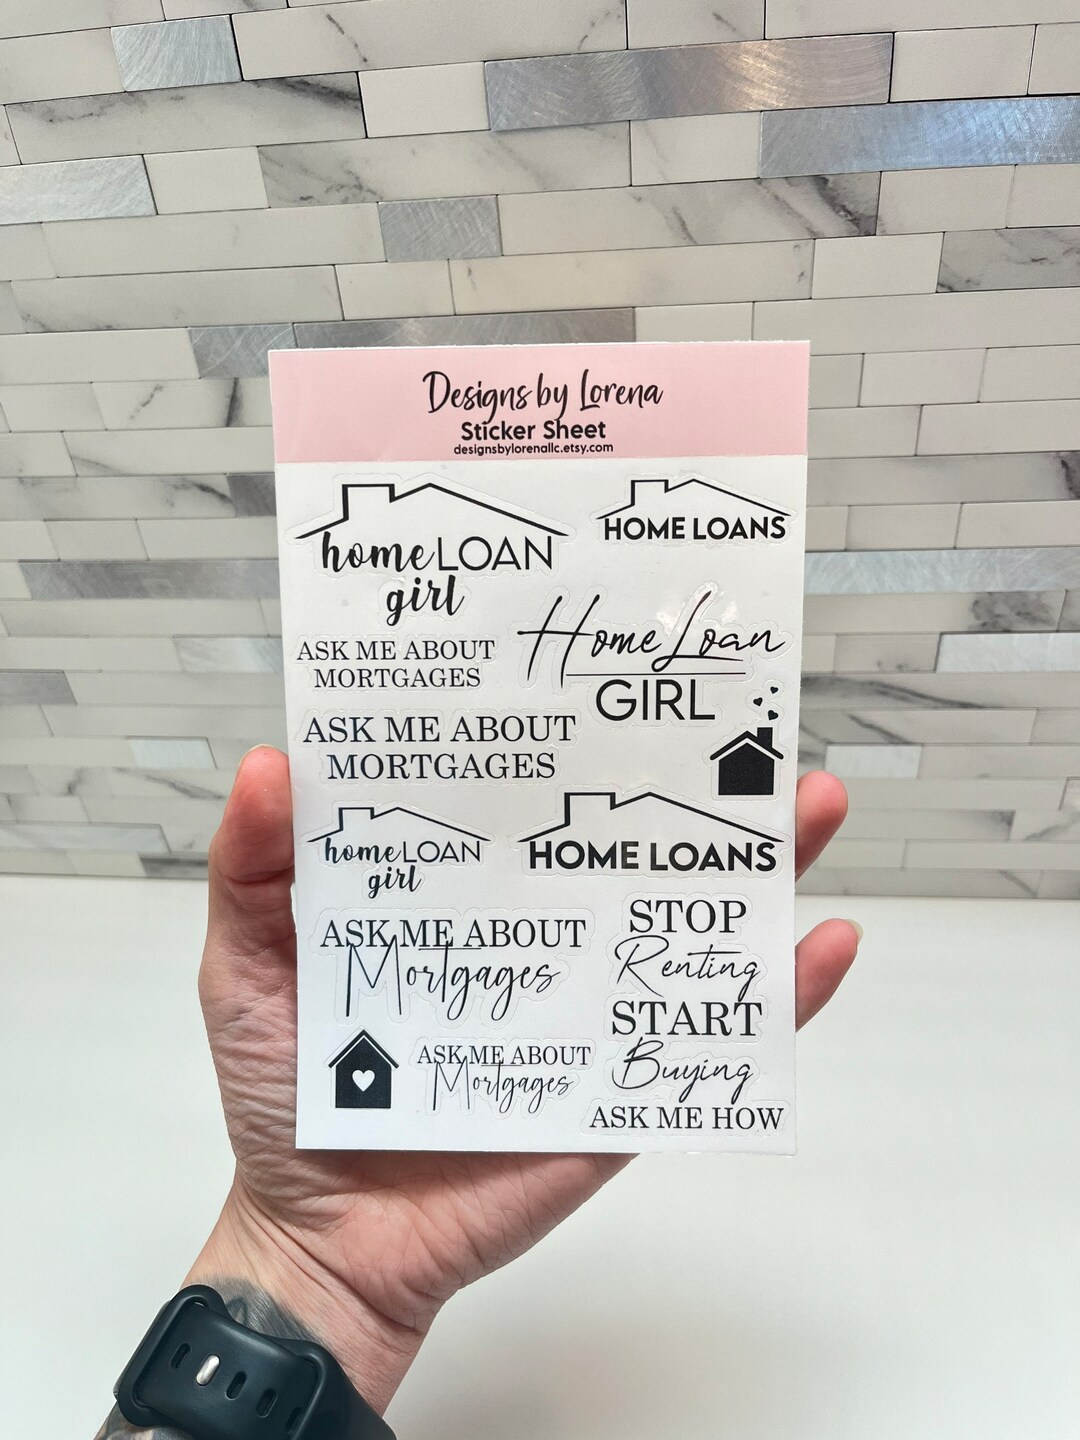 Designs by Lorena
Sticker Sheet
designsbylorenallc.etsy.com
homeLOAN
girl
HOME LOANS
ASK ME ABOUT
MORTGAGES
Home Loan
GIRL
ASK ME ABOUT
MORTGAGES
homeLOAN
girl
HOME LOANS
ASK ME ABOUT
Mortgages
STOP
Renting
START
Buying
ASK ME HOW
ASK ME ABOUT
Mortgages